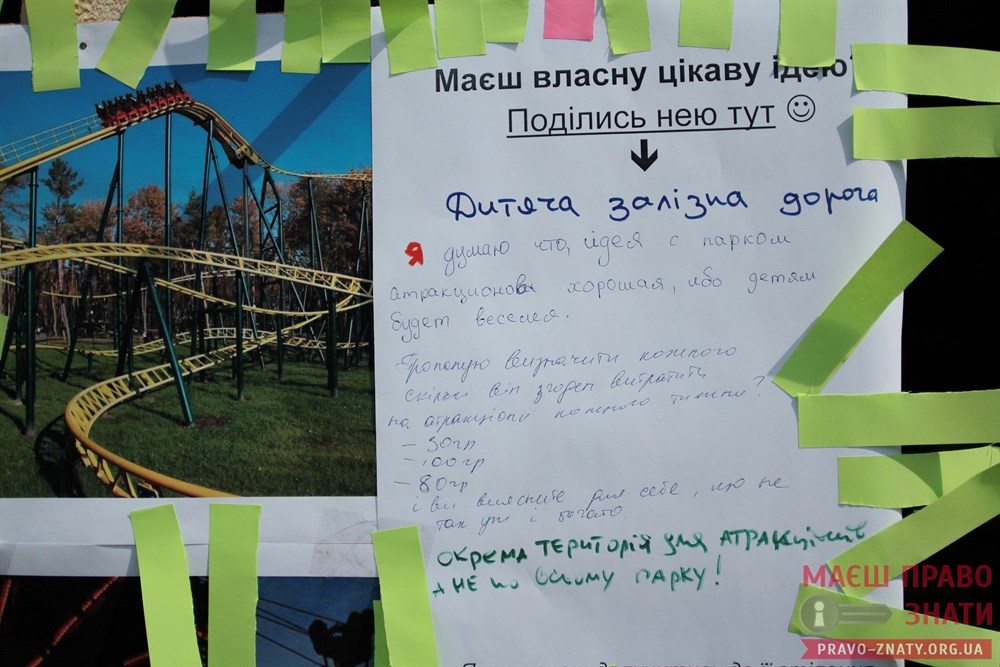 Маєш власну цікаву ідею?
Поділись нею тут ☺
Дитяча залізна дорога
Я думаю что, идея с парком
атракционов хорошая, ибо детям
будет веселея.
Пропоную визначити кожного
скільки він згоден витратить
на атракціони кожного тижня?
– 50гр
– 100гр
– 80гр
і ви виясните для себе, що не
так уж і багато
окрема територія для атракціонів
а не по всьому парку!
МАЄШ ПРАВО
ЗНАТИ
PRAVO-ZNATY.ORG.UA